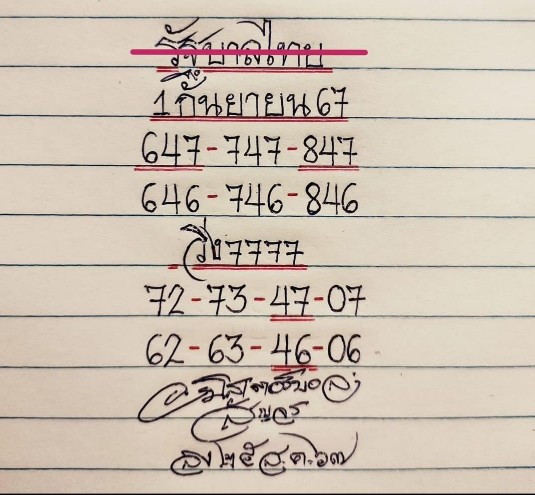 รัฐบาลไทย
1 กันยายน 67
647-747-847
646-746-846
วิ่ง 7777
72-73-47-07
62-63-46-06
สัญจร
ส.ค. ๖๗